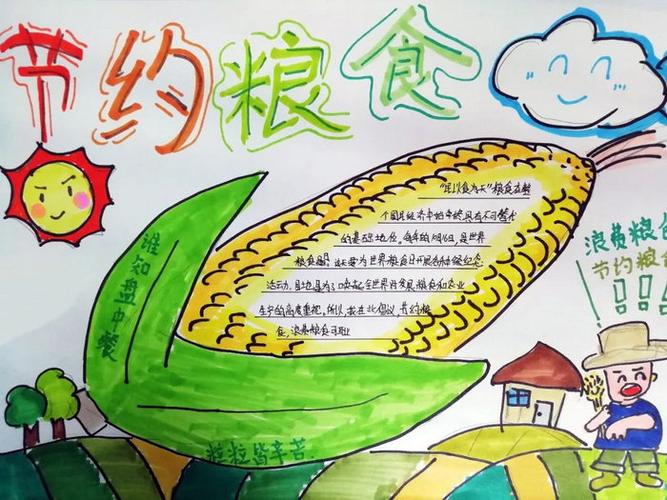 节约粮食
谁知盘中餐
粒粒皆辛苦
"民以食为天"粮食在整
个国民经济中始终具有不可替代
的基础地位。每年的10月16日，是世界
粮食日，这天要为世界粮食日开展各种纪念
活动，目地是为了唤起全世界对发展粮食和农业
生产的高度重视。所以，我在此倡议节约粮
食，浪费粮食可耻
浪费粮食
节约粮食
!!!